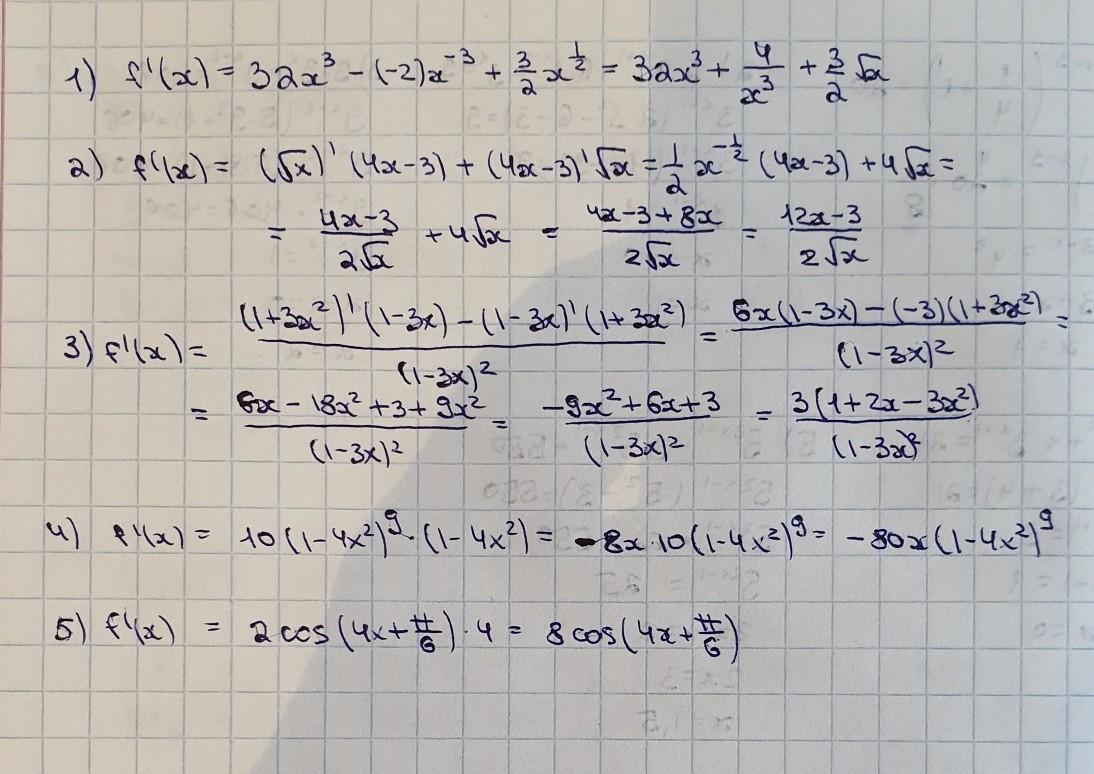 1) f'(x) = 32x³ - (-2)x⁻³ + 3/2 x^(1/2) = 32x³ + 4/x³ + 3/2 √x
2) f'(x) = (√x)' (4x-3) + (4x-3)' √x = 1/2 x^(-1/2) (4x-3) + 4√x =
= (4x-3)/(2√x) + 4√x = (4x-3+8x)/(2√x) = (12x-3)/(2√x)
3) f'(x) = ((1+3x²)' (1-3x) - (1-3x)' (1+3x²))/(1-3x)² = (6x(1-3x) - (-3)(1+3x²))/(1-3x)² =
= (6x - 18x² + 3 + 9x²)/(1-3x)² = (-9x² + 6x + 3)/(1-3x)² = 3(1+2x-3x²)/(1-3x)²
4) f'(x) = 10(1-4x²)⁹ · (1-4x²) = -8x·10(1-4x²)⁹ = -80x(1-4x²)⁹
5) f'(x) = 2cos(4x+π/6)·4 = 8cos(4x+π/6)